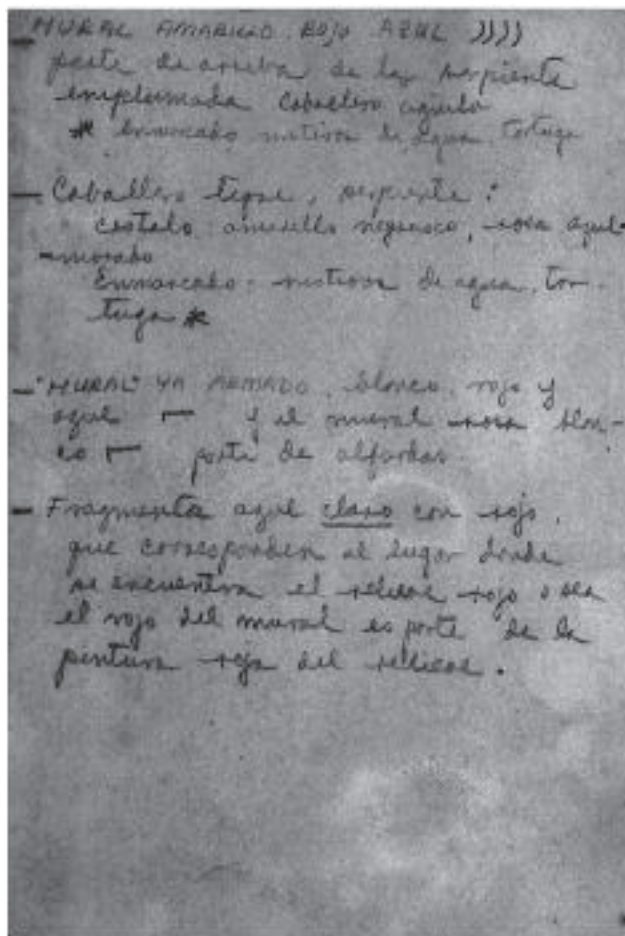 - MURAL AMARILLO ROJO AZUL ))))
parte de arriba de la serpiente
emplumada caballero aguila
* Enmarcado motivos de agua, tortuga
- Caballero tigre, serpiente:
costado amarillo negrusco, rosa azul
-morado
Enmarcado - motivos de agua, tor-
tuga *
- "MURAL" YA ARMADO, blanco, rojo y
azul ┌ y el mural rosa blan-
co ┌ parte de alfardas.
- Fragmentos azul claro con rojo,
que corresponden al lugar donde
se encuentra el relieve rojo o sea
el rojo del mural es parte de la
pintura roja del relieve.